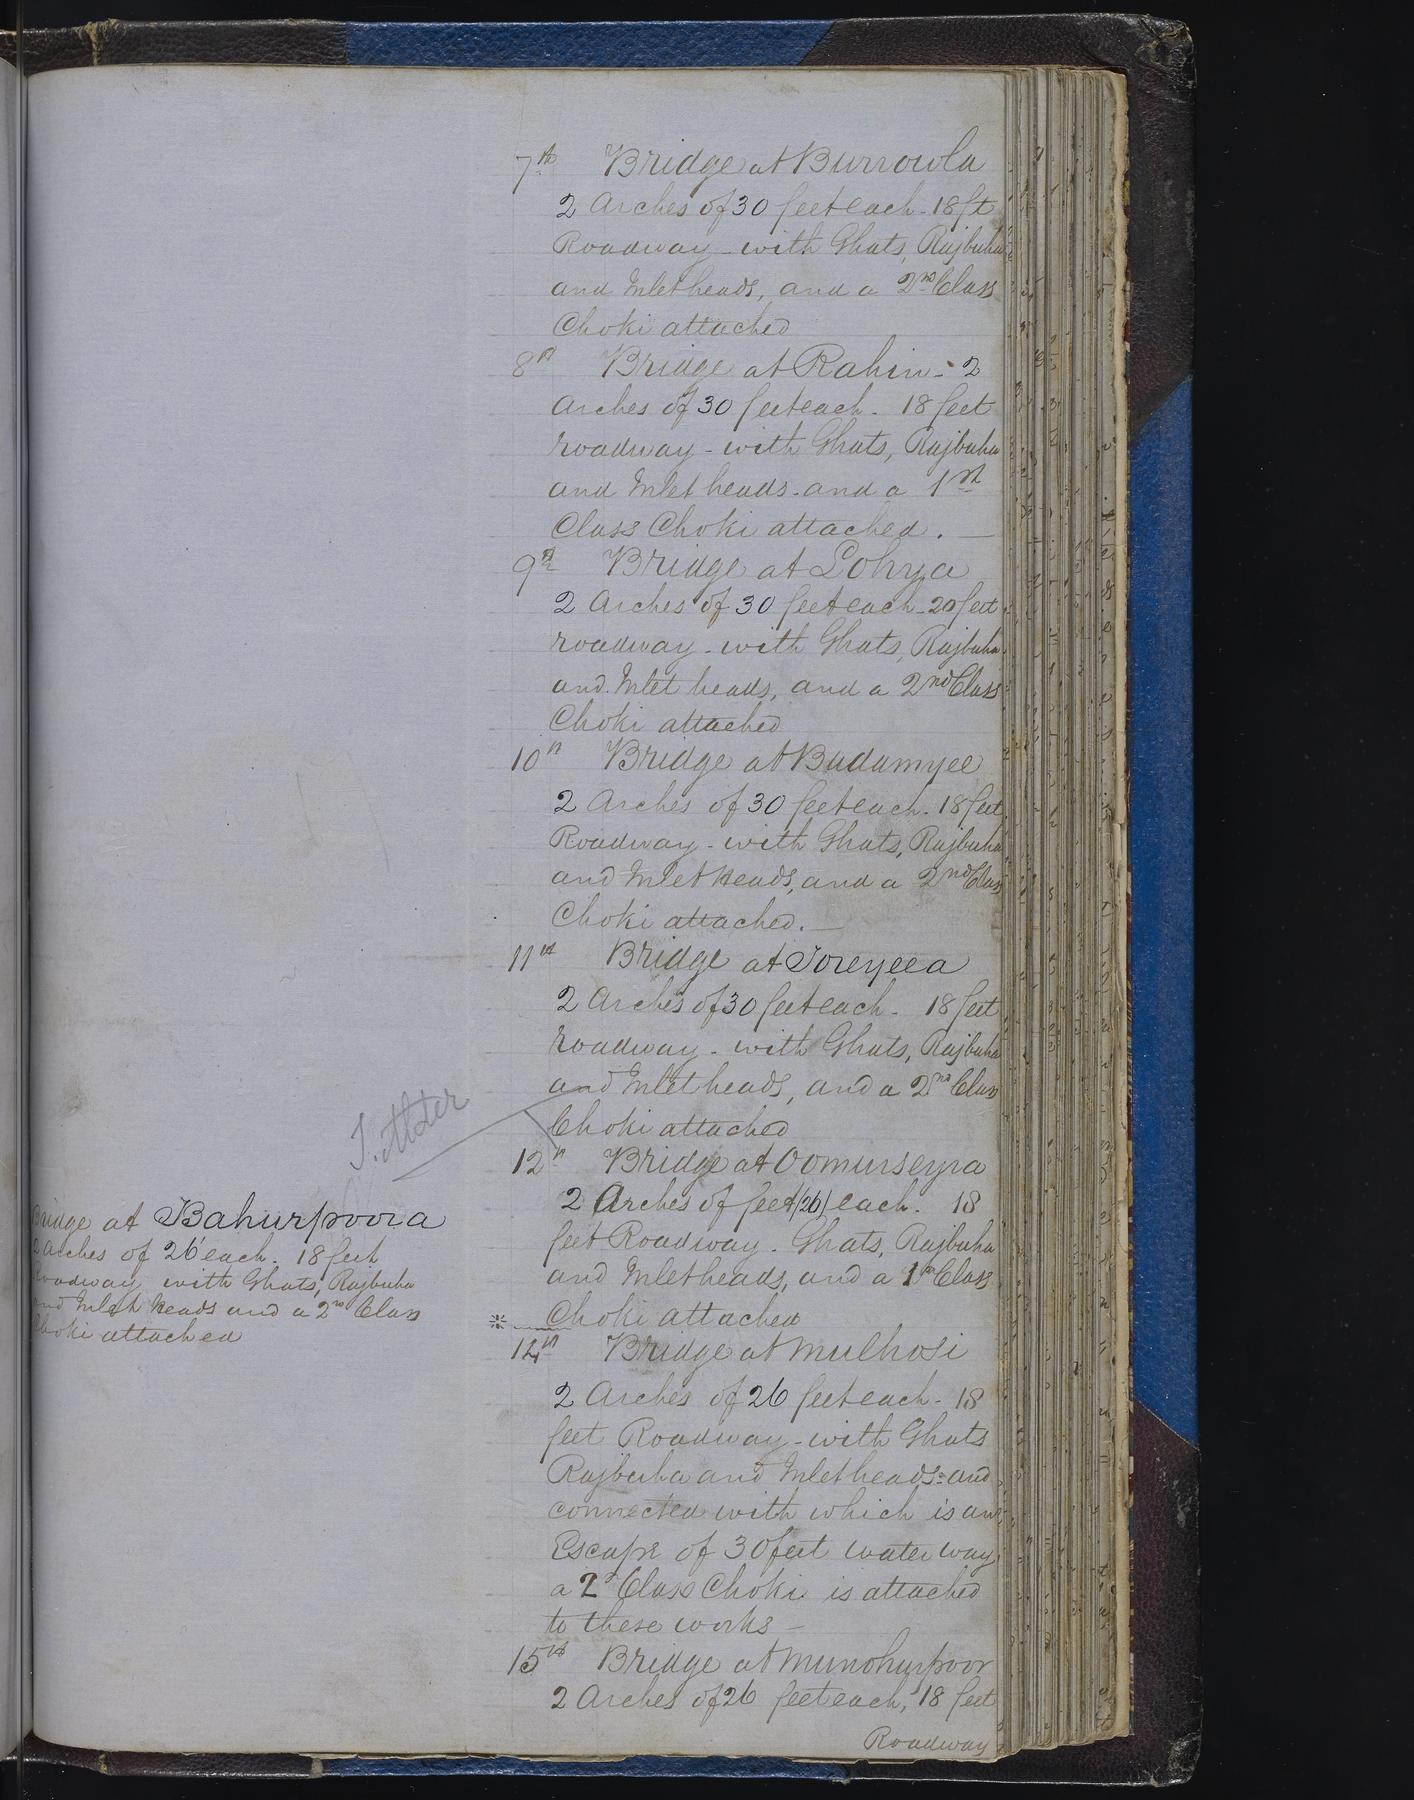 7th Bridge at Burrowla
2 Arches of 30 feet each - 18 ft
Roadway - with Ghats, Rajbuha
and Inlet heads, and a 2nd Class
Choki attached
8th Bridge at Rahin - 2
Arches of 30 feet each - 18 feet
roadway - with Ghats, Rajbuha
and Inlet heads - and a 1st
Class Choki attached. —
9th Bridge at Lohya
2 Arches of 30 feet each - 20 feet
roadway - with Ghats, Rajbuha
and Inlet heads, and a 2nd Class
Choki attached
10th Bridge at Budumyee
2 Arches of 30 feet each - 18 feet
Roadway - with Ghats, Rajbuha
and Inlet heads, and a 2nd Class
Choki attached. —
11th Bridge at Toreyeea
2 Arches of 30 feet each - 18 feet
roadway - with Ghats, Rajbuha
and Inlet heads, and a 2nd Class
Choki attached
12th Bridge at Oomurseyra
2 Arches of feet /26/ each. 18
feet Roadway - Ghats, Rajbuha
and Inlet heads, and a 1st Class
Choki attached
Bridge at Bahurpoora
2 Arches of 26' each. 18 feet
Roadway with Ghats, Rajbuha
and Inlet heads and a 2nd Class
Choki attached
14th Bridge at Mulhosi
2 Arches of 26 feet each - 18
feet Roadway - with Ghats
Rajbuha and Inlet heads - and
connected with which is an
Escape of 30 feet water way
a 2d Class Choki is attached
to these works —
15th Bridge at Munohurpoor
2 Arches of 26 feet each, 18 feet
Roadway